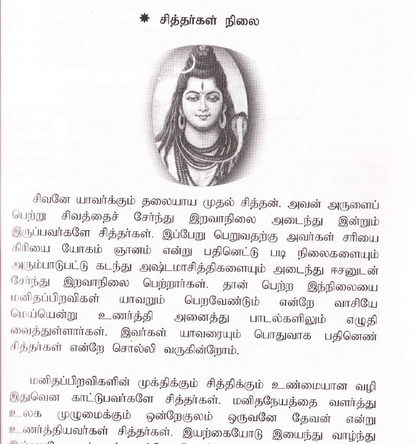 ✸ சித்தர்கள் நிலை
சிவனே யாவர்க்கும் தலையாய முதல் சித்தன். அவன் அருளைப்
பெற்று சிவத்தைச் சேர்ந்து இறவாநிலை அடைந்து இன்றும்
இருப்பவர்களே சித்தர்கள். இப்பேறு பெறுவதற்கு அவர்கள் சரியை
கிரியை யோகம் ஞானம் என்று பதினெட்டு படி நிலைகளையும்
அரும்பாடுபட்டு கடந்து அஷ்டமாசித்திகளையும் அடைந்து ஈசனுடன்
சேர்ந்து இறவாநிலை பெற்றார்கள். தான் பெற்ற இந்நிலையை
மனிதப்பிறவிகள் யாவரும் பெறவேண்டும் என்றே வாசியே
மெய்யென்று உணர்த்தி அனைத்து பாடல்களிலும் எழுதி
வைத்துள்ளார்கள். இவர்கள் யாவரையும் பொதுவாக பதினெண்
சித்தர்கள் என்றே சொல்லி வருகின்றோம்.
மனிதப்பிறவிகளின் முக்திக்கும் சித்திக்கும் உண்மையான வழி
இதுவென காட்டுபவர்களே சித்தர்கள். மனிதநேயத்தை வளர்த்து
உலக முழுமைக்கும் ஒன்றேகுலம் ஒருவனே தேவன் என்று
உணர்த்தியவர்கள் சித்தர்கள். இயற்கையோடு இயைந்து வாழ்ந்து